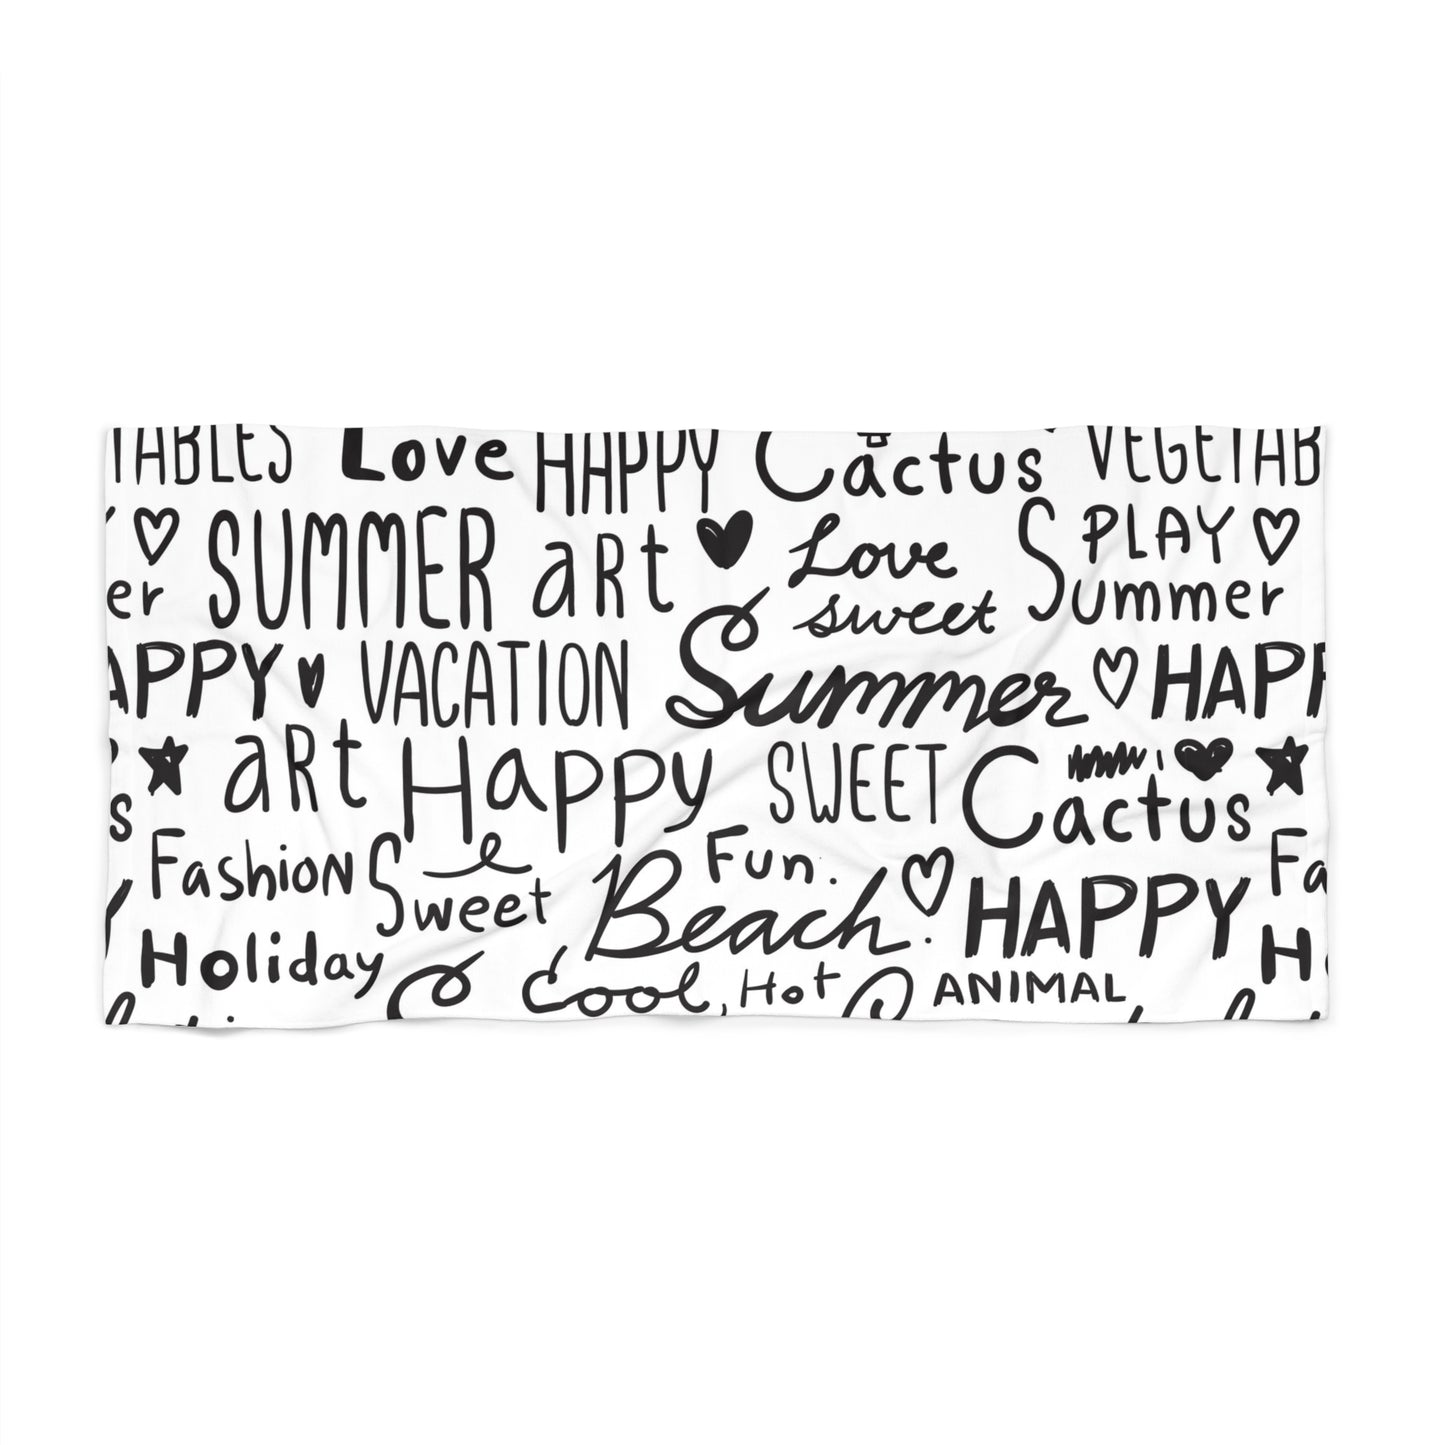 TABLES Love HAPPY Cactus VEGETAB
PLAY
SUMMER art Love Summer
er sweet
APPY VACATION Summer HAPP
art Happy SWEET Cactus
s
Fashion Sweet Fun. Fa
Beach. HAPPY
Holiday H
Cool, Hot ANIMAL